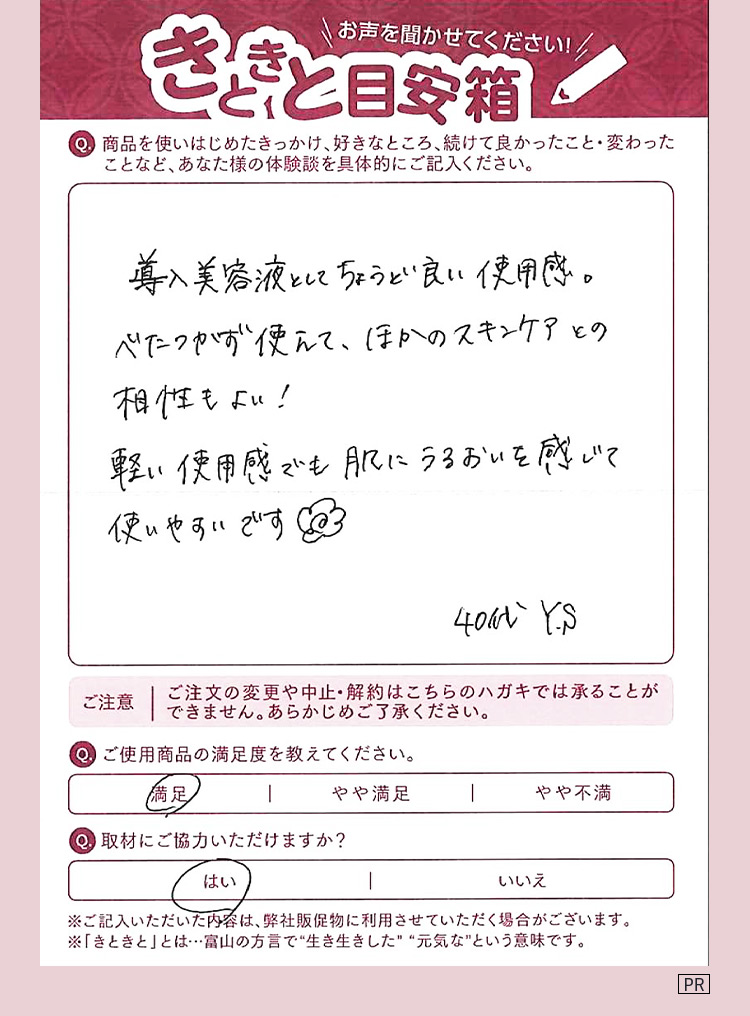 お声を聞かせてください!
きときと目安箱
Q. 商品を使いはじめたきっかけ、好きなところ、続けて良かったこと・変わった
ことなど、あなた様の体験談を具体的にご記入ください。
導入美容液としてちょうど良い使用感。
べたつかず使えて、ほかのスキンケアとの
相性もよい!
軽い使用感でも肌にうるおいを感じて
使いやすいです
40代 Y.S
ご注意 ご注文の変更や中止・解約はこちらのハガキでは承ることが
できません。あらかじめご了承ください。
Q. ご使用商品の満足度を教えてください。
満足 | やや満足 | やや不満
Q. 取材にご協力いただけますか?
はい | いいえ
※ご記入いただいた内容は、弊社販促物に利用させていただく場合がございます。
※「きときと」とは…富山の方言で"生き生きした" "元気な"という意味です。
PR